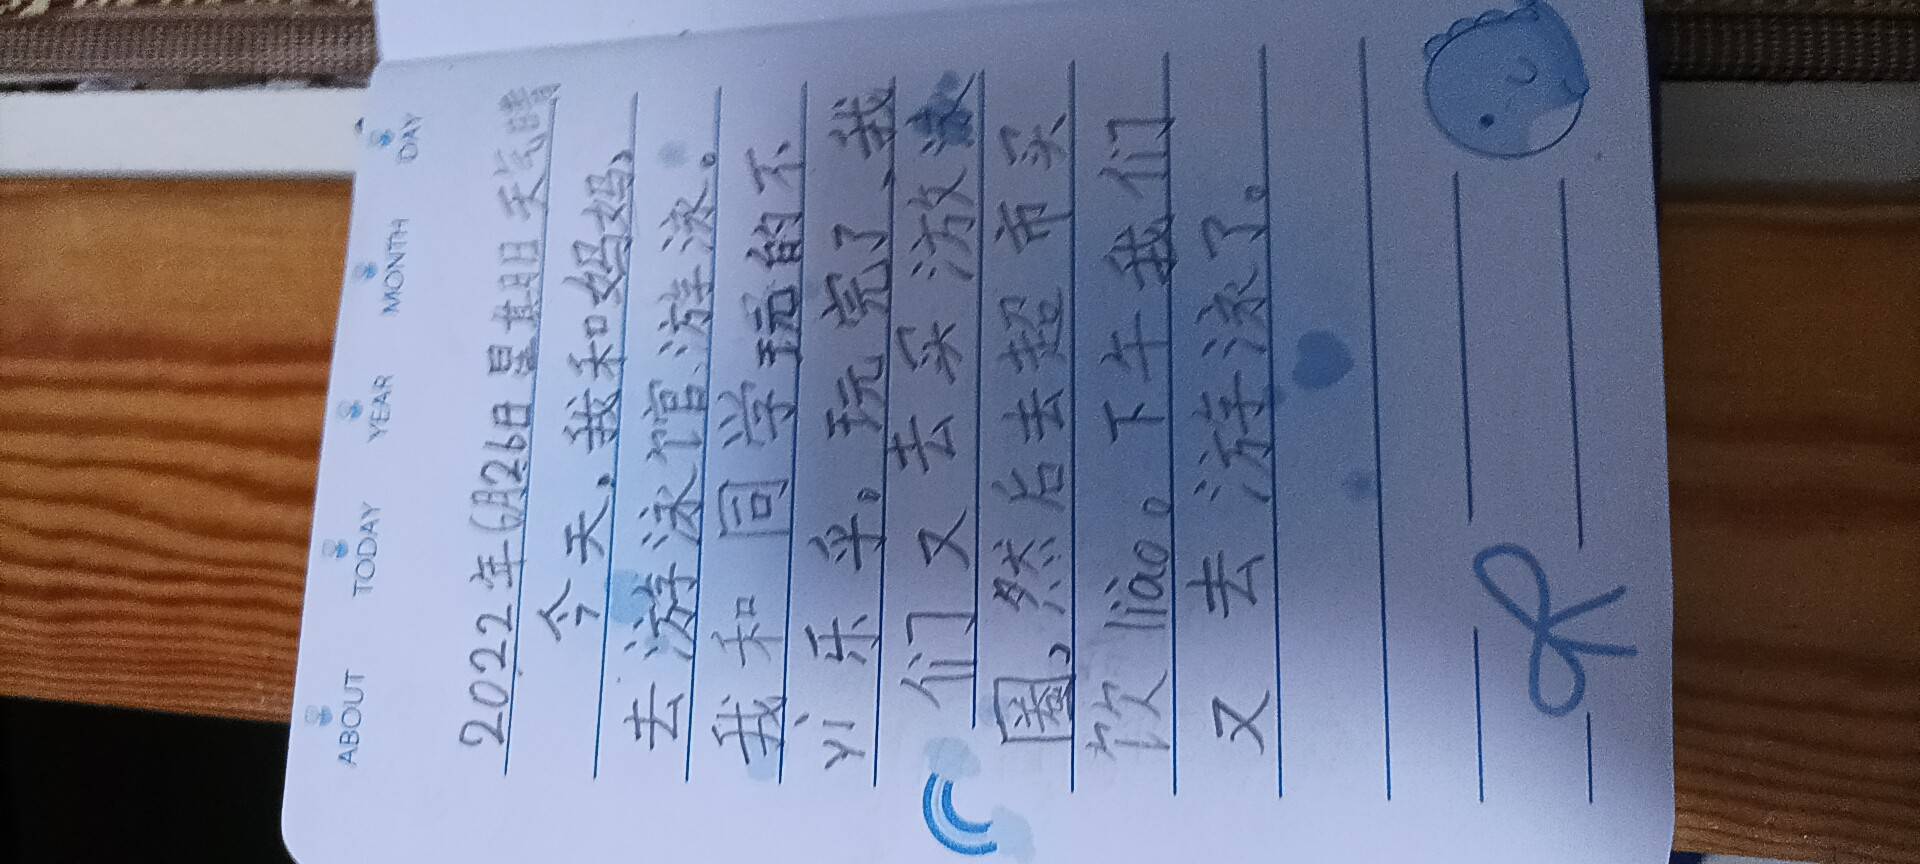 ABOUT TODAY YEAR MONTH DAY
2022年6月26日星期日 天气晴
今天,我和妈妈,
去游泳馆游泳。
我和同学玩的不
yì乐乎。玩完了,我
们又去买游泳
圈,然后去超市买
饮liao。下午我们
又去游泳了。